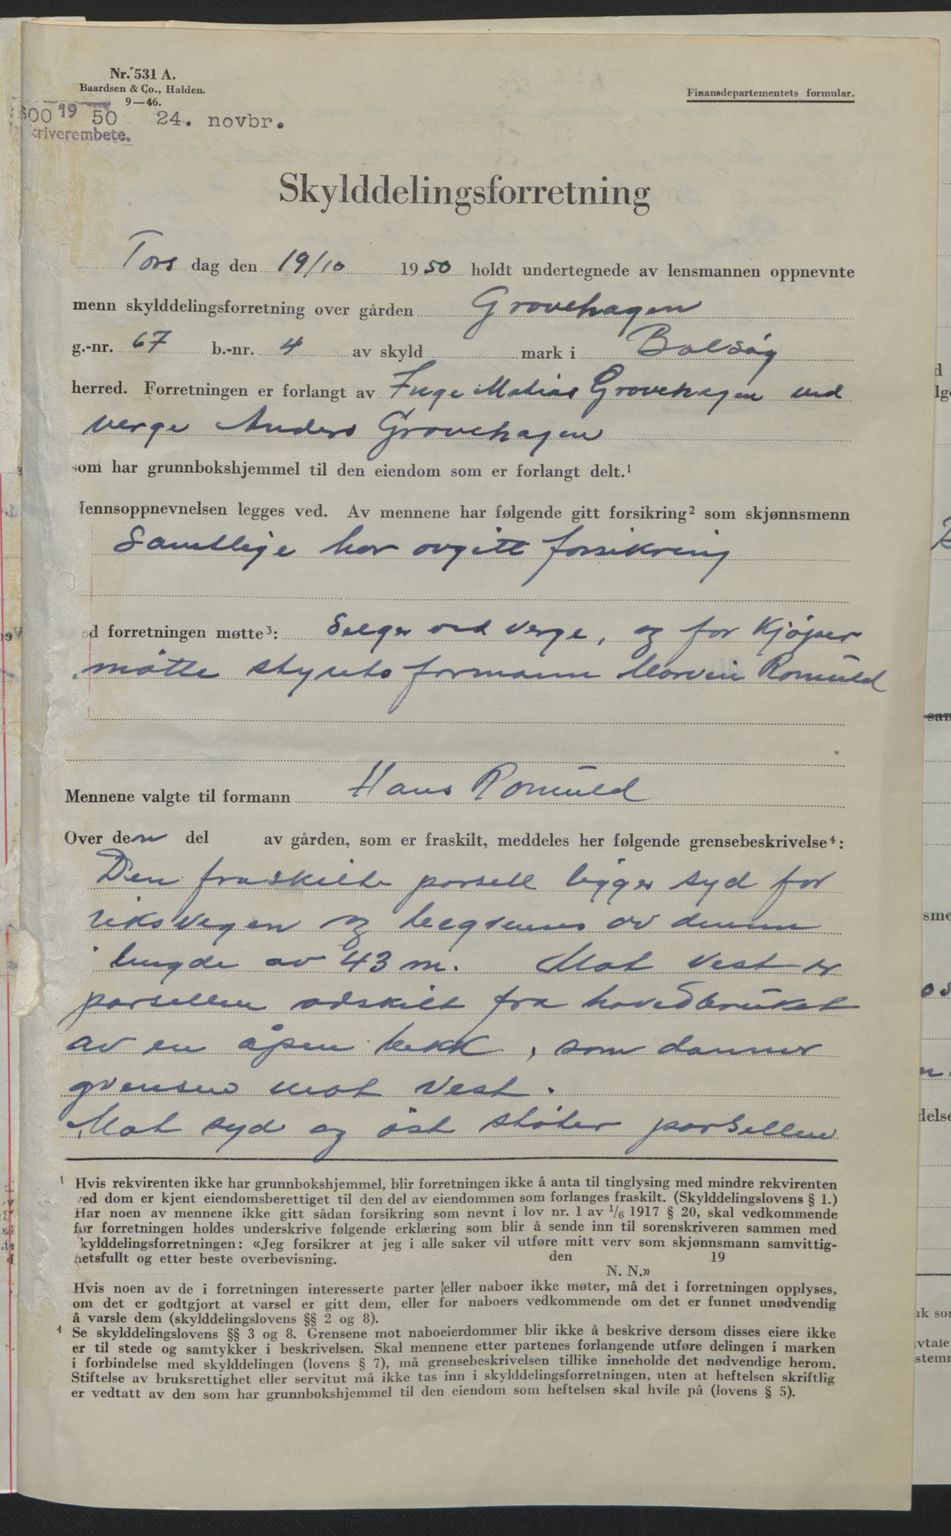 Nr. 531 A.
Baardsen & Co., Halden.
9—46.
Finansdepartementets formular.
19 50 24. novbr.
kriverembete.
Skylddelingsforretning
Tors dag den 19/10 1950 holdt undertegnede av lensmannen oppnevnte
menn skylddelingsforretning over gården Grovehagen
g.-nr. 67 b.-nr. 4 av skyld mark i Bolsøy
herred. Forretningen er forlangt av Inge Matias Grovehagen ved
verge Anders Grovehagen
som har grunnbokshjemmel til den eiendom som er forlangt delt.¹
Mennsoppnevnelsen legges ved. Av mennene har følgende gitt forsikring² som skjønnsmenn
Samtlige har avgitt forsikring
ed forretningen møtte³: Selger ved verge, og for kjøper
møtte styrets formann Marvin Romuld
Mennene valgte til formann Hans Romuld
Over den del av gården, som er fraskilt, meddeles her følgende grensebeskrivelse⁴:
Den fraskilte parsell ligger syd for
riksvegen og begrenses av denne
lengde av 43 m. Mot vest er
parsellen adskilt fra hovedbruket
av en åpen bekk, som danner
grensen mot vest.
Mot syd og øst støter parsellen
¹ Hvis rekvirenten ikke har grunnbokshjemmel, blir forretningen ikke å anta til tinglysing med mindre rekvirenten
ved dom er kjent eiendomsberettiget til den del av eiendommen som forlanges fraskilt. (Skylddelingslovens § 1.)
Har noen av mennene ikke gitt sådan forsikring som nevnt i lov nr. 1 av 1/6 1917 § 20, skal vedkommende
før forretningen holdes underskrive følgende erklæring som blir å sende inn til sorenskriveren sammen med
kylddelingsforretningen: «Jeg forsikrer at jeg i alle saker vil utføre mitt verv som skjønnsmann samvittig-
hetsfullt og etter beste overbevisning. den 19
N. N.»
Hvis noen av de i forretningen interesserte parter eller naboer ikke møter, må det i forretningen opplyses,
om det er godtgjort at varsel er gitt dem, eller for naboers vedkommende om det er funnet unødvendig
å varsle dem (skylddelingslovens §§ 2 og 8).
⁴ Se skylddelingslovens §§ 3 og 8. Grensene mot naboeierdommer blir ikke å beskrive dersom disses eiere ikke
er til stede og samtykker i beskrivelsen. Skal mennene etter partenes forlangende utføre delingen i marken
i forbindelse med skylddelingen (lovens § 7), må grensebeskrivelsen tillike inneholde det nødvendige herom.
Stiftelse av bruksrettighet eller servitut må ikke tas inn i skylddelingsforretningen, uten at heftelsen skriftlig
er vedtatt av den som har grunnbokshjemmel til den eiendom som heftelsen skal hvile på (lovens § 5).